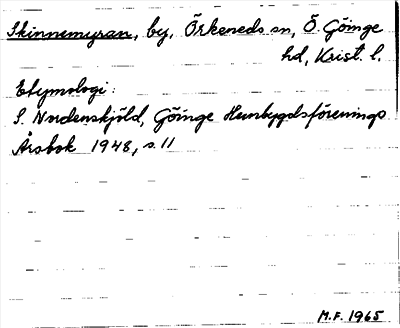 Skinnemyran, by, Örkeneds sn, Ö. Göinge
hd, Krist. l.
Etymologi:
S. Nordenskjöld, Göinge Hembygdsförenings
Årsbok 1948, s. 11
M.F. 1965